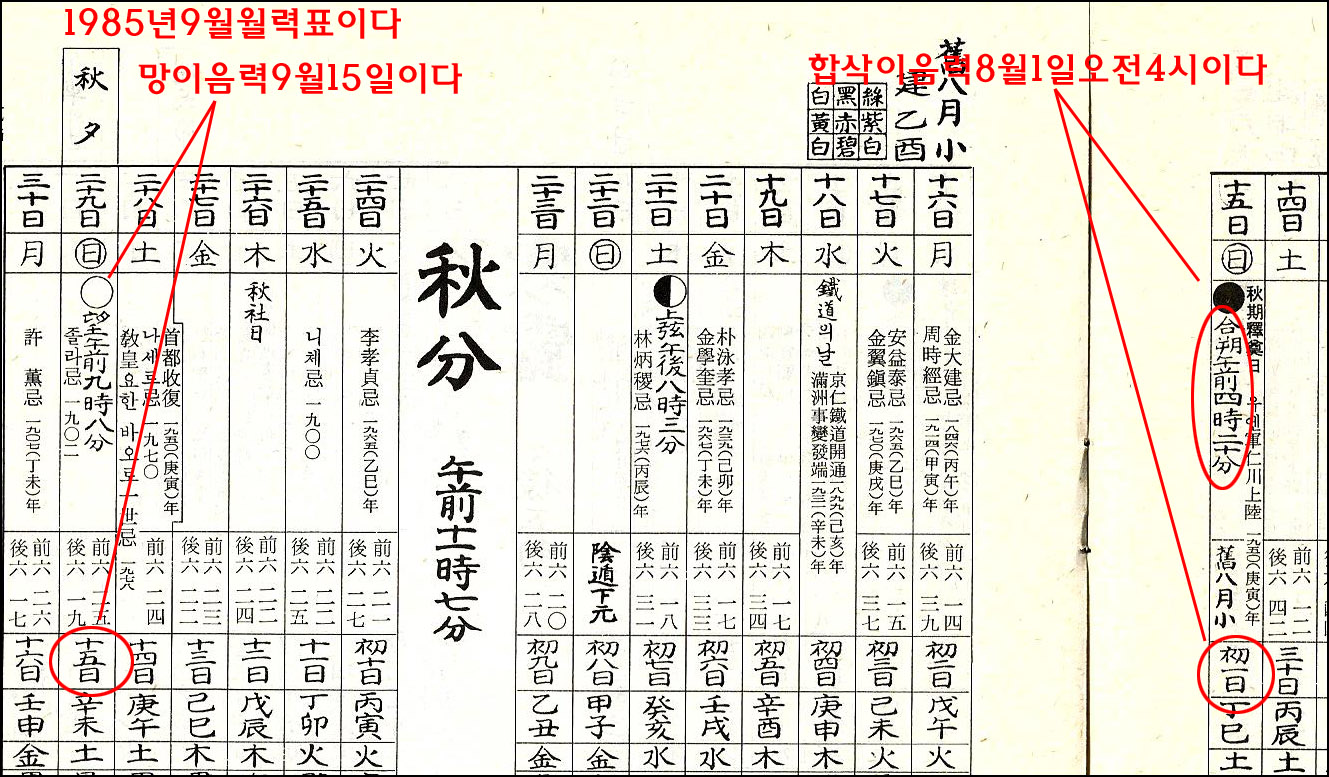 1985년9월월력표이다
망이음력9월15일이다
합삭이음력8월1일오전4시이다
十四日
土
前六 一二
後六 四二
三十日
丙辰
土
十五日
日
秋期釋奠日 유엔軍仁川上陸 一九五〇(庚寅)年
合朔午前四時二十分
舊八月小
初一日
丁巳
土
舊八月小
建乙酉
綠紫白
黑赤碧
白黃白
十六日
月
金大建忌 一八四六(丙午)年
周時經忌 一九一四(甲寅)年
前六 一四
後六 三九
初二日
戊午
火
十七日
火
安益泰忌 一九六五(乙巳)年
金翼鎭忌 一九七〇(庚戌)年
前六 一五
後六 三七
初三日
己未
火
十八日
水
鐵道의날
京仁鐵道開通 一八九九(己亥)年
滿洲事變發端 一九三一(辛未)年
初四日
庚申
木
十九日
木
前六 一七
後六 三四
初五日
辛酉
木
二十日
金
朴泳孝忌 一九三九(己卯)年
金學奎忌 一九六七(丁未)年
前六 一七
後六 三三
初六日
壬戌
水
二十一日
土
上弦午後八時三分
林炳稷忌 一九七六(丙辰)年
前六 一八
後六 三一
初七日
癸亥
水
二十二日
日
陰遁下元
初八日
甲子
金
二十三日
月
前六 二〇
後六 二八
初九日
乙丑
金
秋分
午前十一時七分
二十四日
火
李孝貞忌 一九六五(乙巳)年
前六 二一
後六 二七
初十日
丙寅
火
二十五日
水
니체忌 一九〇〇
前六 二二
後六 二五
十一日
丁卯
火
二十六日
木
秋社日
前六 二二
後六 二四
十二日
戊辰
木
二十七日
金
首都收復 一九五〇(庚寅)年
前六 二三
後六 二二
十三日
己巳
木
二十八日
土
나세르忌 一九七〇
敎皇요한바오로一世忌 一九七八
前六 二四
十四日
庚午
土
秋夕
二十九日
日
望午前九時八分
졸라忌 一九〇二
前六 二五
後六 一九
十五日
辛未
土
三十日
月
許薰忌 一九〇七(丁未)年
前六 二六
後六 一七
十六日
壬申
金